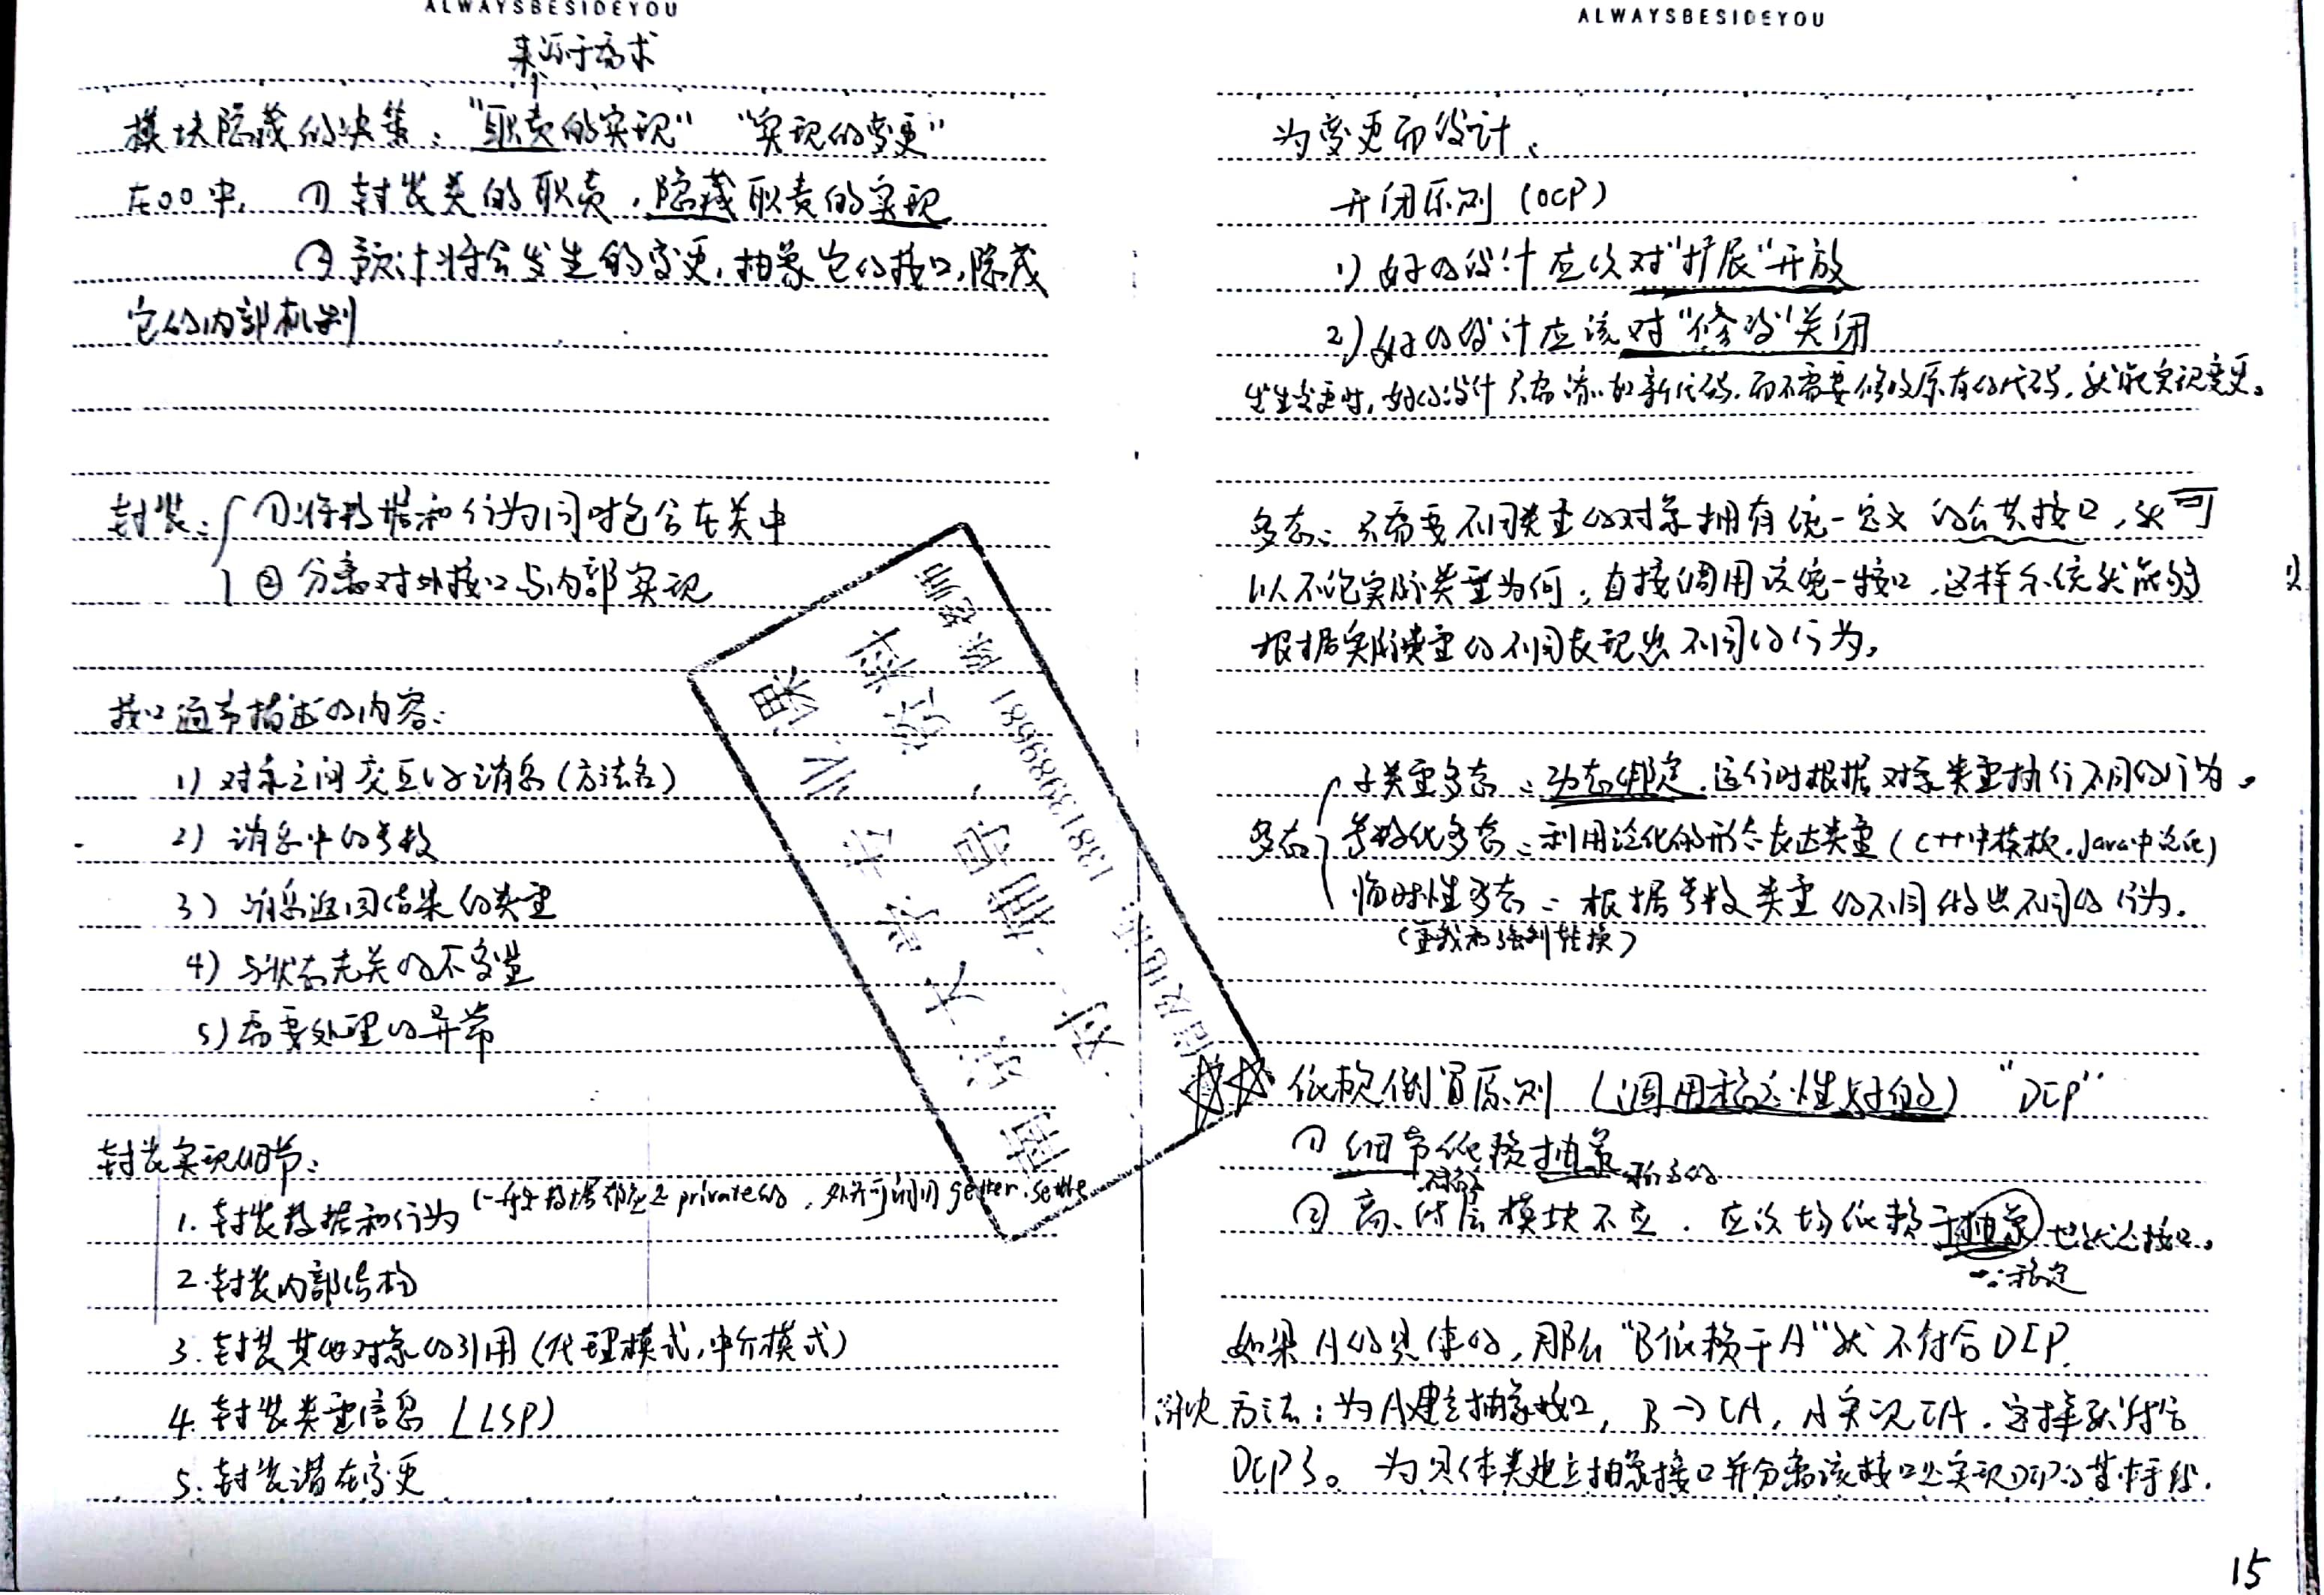 ALWAYSBESIDEYOU
来源于需求
模块隐藏的决策："职责的实现" "实现的变更"
在OO中, ① 封装类的职责，隐藏职责的实现
② 预计将会发生的变更，抽象它的接口，隐藏
它的内部机制
封装：① 将数据和行为同时包含在类中
② 分离对外接口与内部实现
接口通常描述的内容：
1) 对象之间交互的消息(方法名)
2) 消息中的参数
3) 消息返回结果的类型
4) 与状态无关的不变量
5) 需要处理的异常
封装实现细节：
1. 封装数据和行为 (一般数据都应是private的，外界可调用getter.setter
2. 封装内部结构
3. 封装其他对象的引用 (代理模式，中介模式)
4. 封装类型信息 (LSP)
5. 封装潜在变更
ALWAYSBESIDEYOU
为变更而设计、
开闭原则 (OCP)
1) 好的设计应该对"扩展"开放
2) 好的设计应该对"修改"关闭
发生变更时，好的设计只需添加新代码，而不需要修改原有的代码，就能实现变更。
多态：只需要不同类型的对象拥有统一定义的公共接口，就可
以不论实际类型为何，直接调用该统一接口，这样系统就能够
根据实际类型的不同表现出不同的行为。
多态
子类型多态：动态绑定，运行时根据对象类型执行不同的行为。
参数化多态：利用泛化的形态表达类型(C++中模板，Java中泛化)
临时性多态：根据参数类型的不同做出不同的行为。
(重载和强制转换)
依赖倒置原则 "DIP"
① 细节依赖抽象
② 高、低层模块不应，应该均依赖于抽象 也就是接口。
∵稳定
如果A的具体的，那么"B依赖于A"就不符合DIP.
解决方法：为A建立抽象接口，B→IA，A实现IA，这样就符合
DIP了。为具体类建立抽象接口并分离该接口是实现DIP的基本手段.
南京大学北操
对面、教材
13813989681 陈老师
15